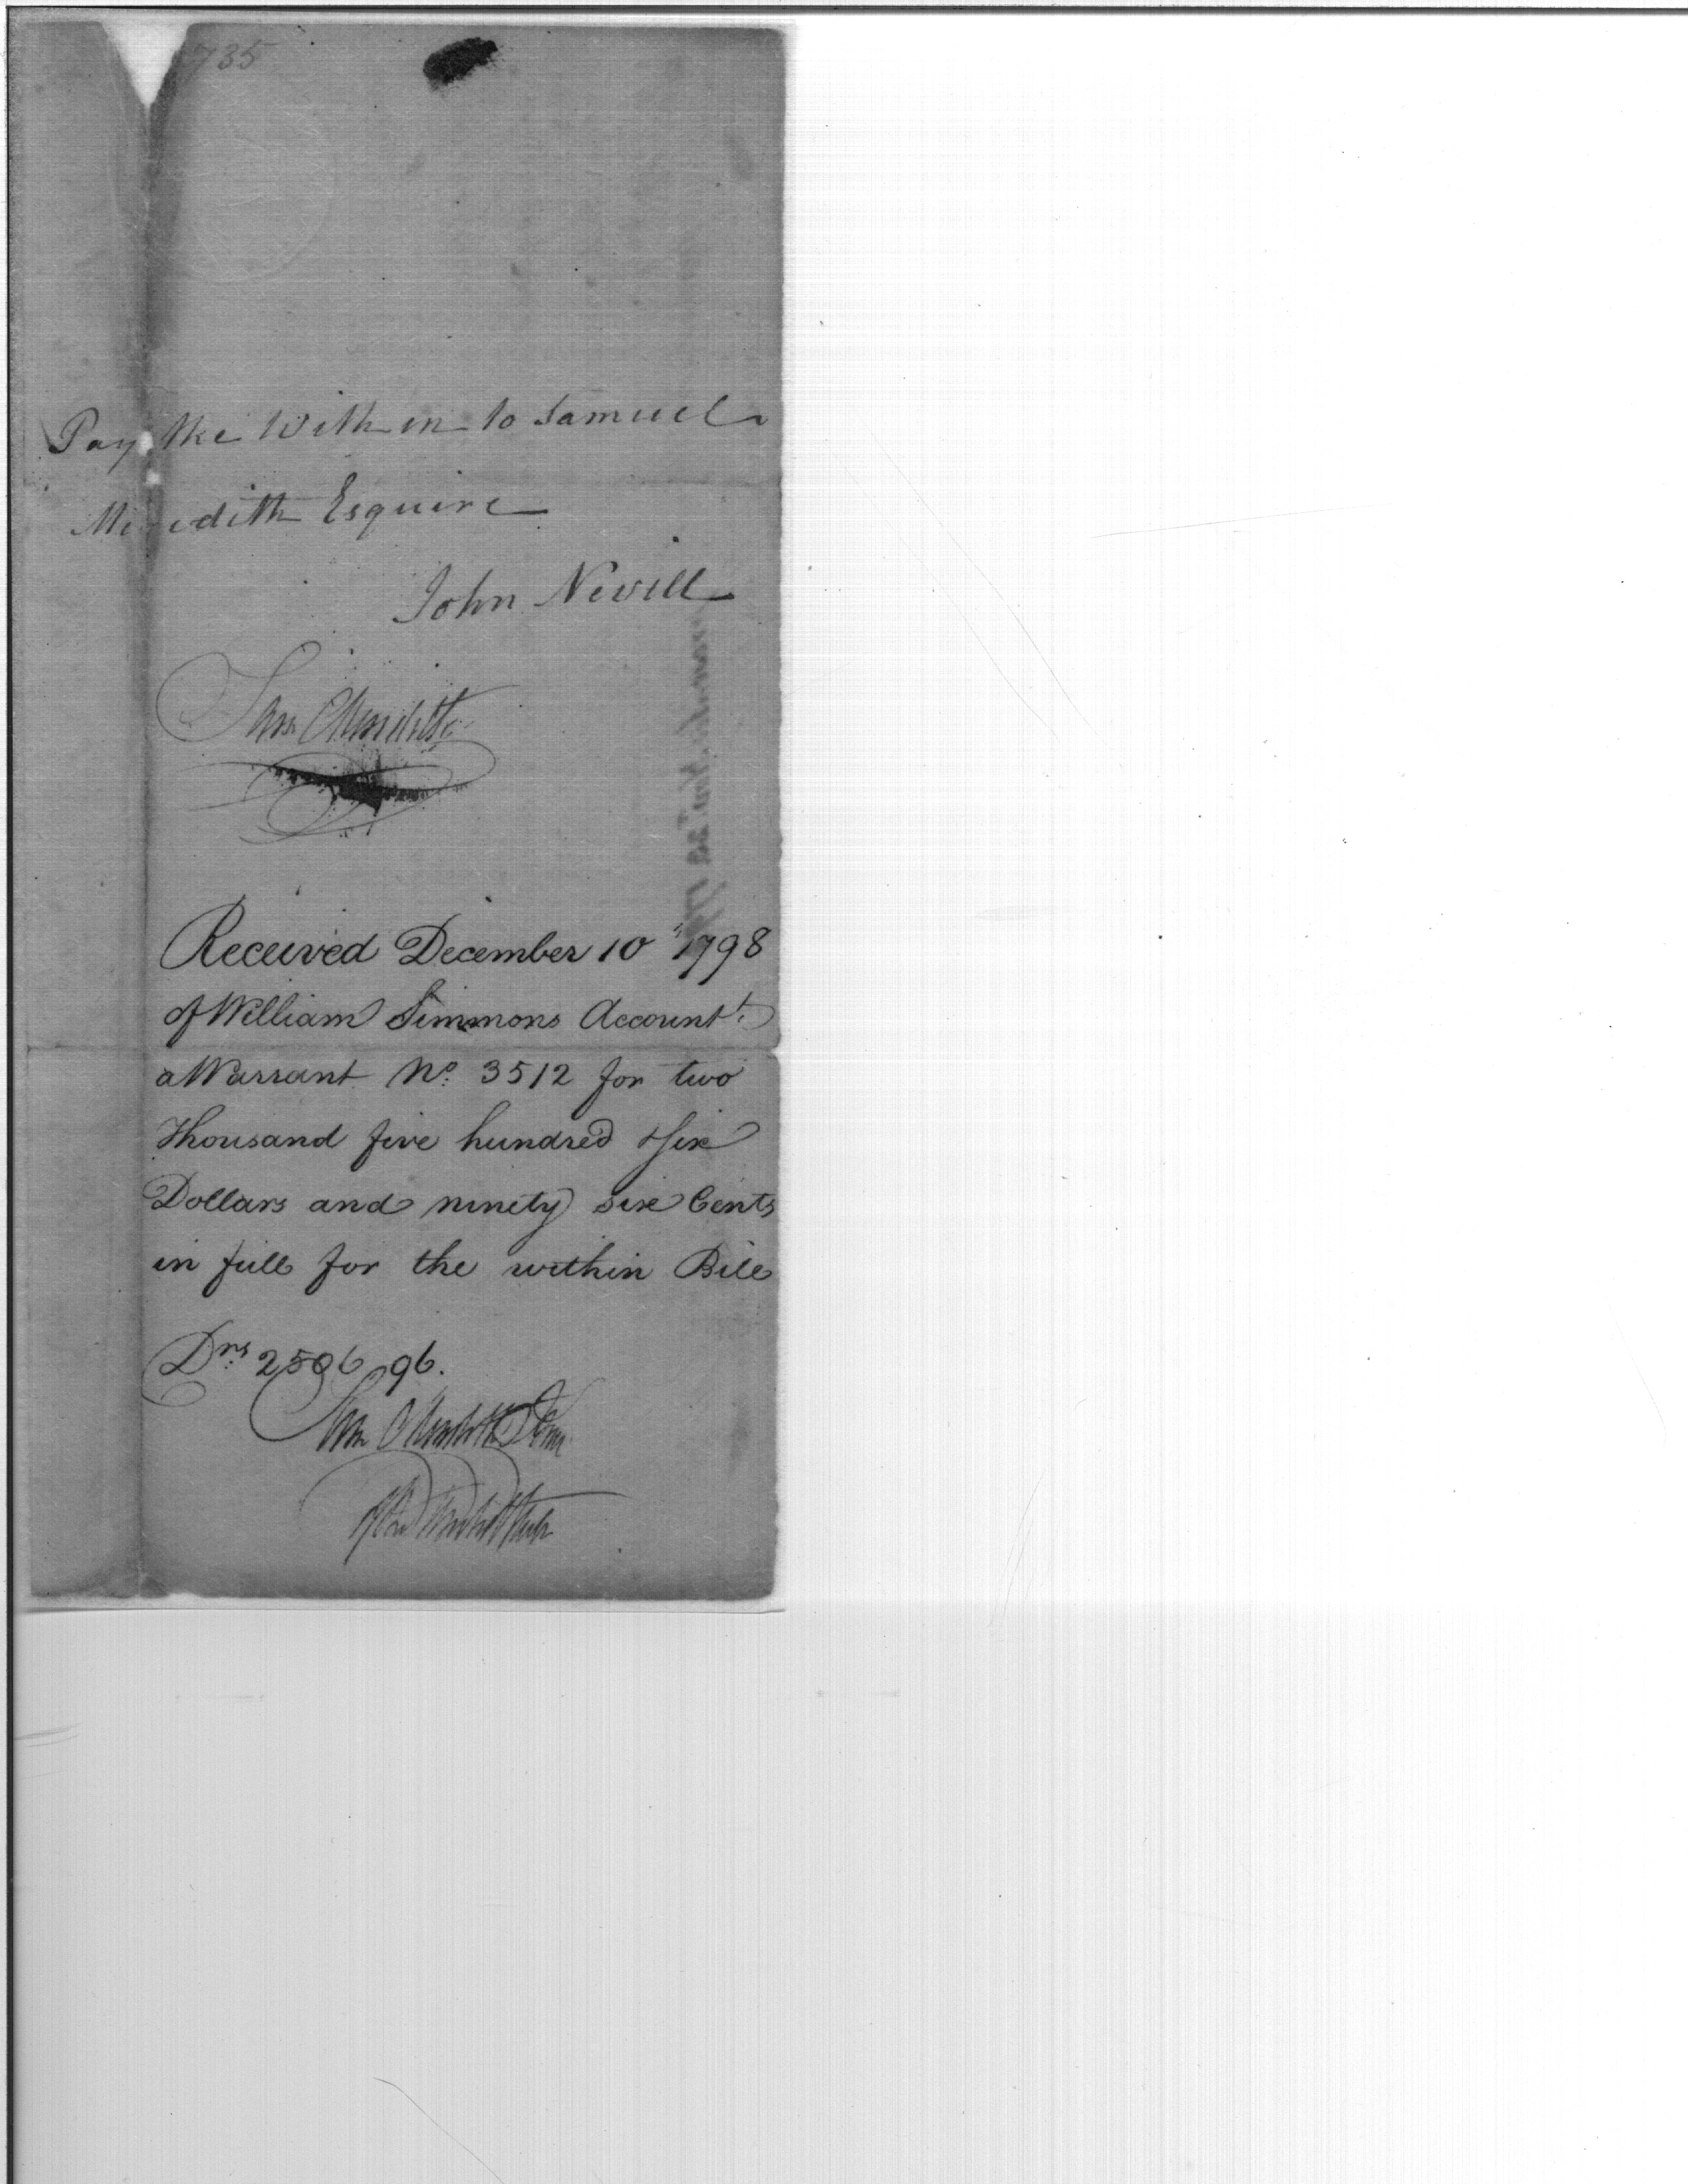 735
Pay the Within to Samuel
Meredith Esquire
John Nevill
Sam Meredith
Received December 10" 1798
of William Simmons Account.t
a Warrant No. 3512 for two
Thousand five hundred & six
Dollars and ninety six Cents
in full for the within Bill
Drs. 2506 96.
Sam Meredith